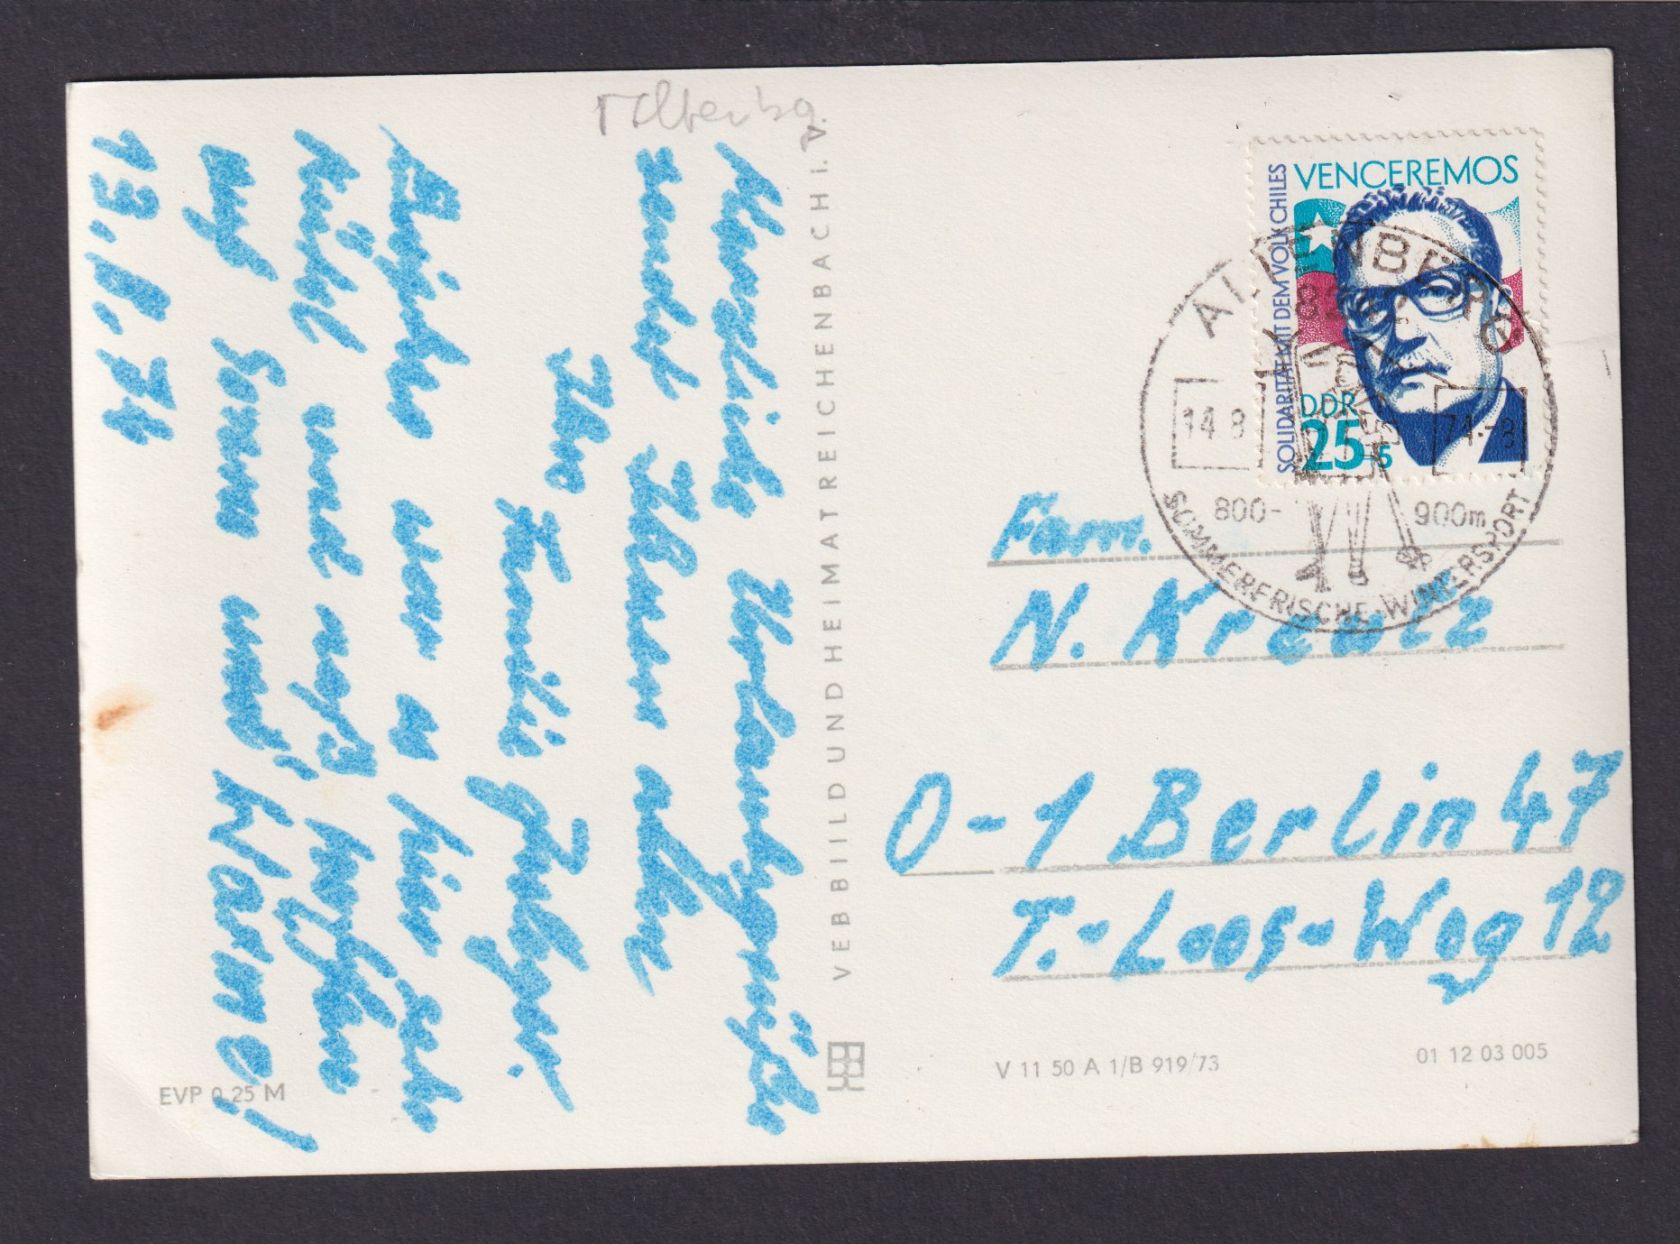 Altenbg
Herzliche Urlaubsgrüße
sendet Ihnen allen
Ihre
Familie
Bisher war es hier sehr
kühl und naß, hoffen
auf Sonne und Wärme!
13.8.74
VEB BILD UND HEIMAT REICHENBACH i. V.
EVP 0,25 M
VENCEREMOS
SOLIDARITÄT MIT DEM VOLK CHILES
DDR
25+5
ALTENBERG
14.8 74.-8
800- 900m
SOMMERFRISCHE-WINTERSPORT
Fam.
N. Kreutz
O-1 Berlin 47
T.-Loos-Weg 12
V 11 50 A 1/B 919/73
01 12 03 005